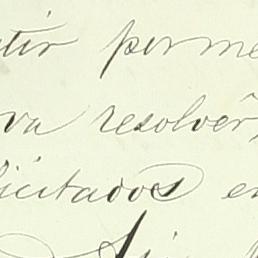 tir perme
va resolver,
licitados e